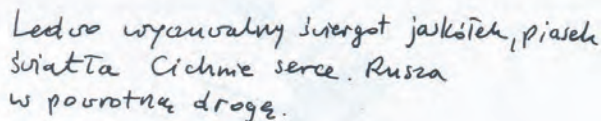 Ledwo wyczuwalny świergot jaskółek, piasek
światła Cichnie serce. Rusza
w powrotną drogę.